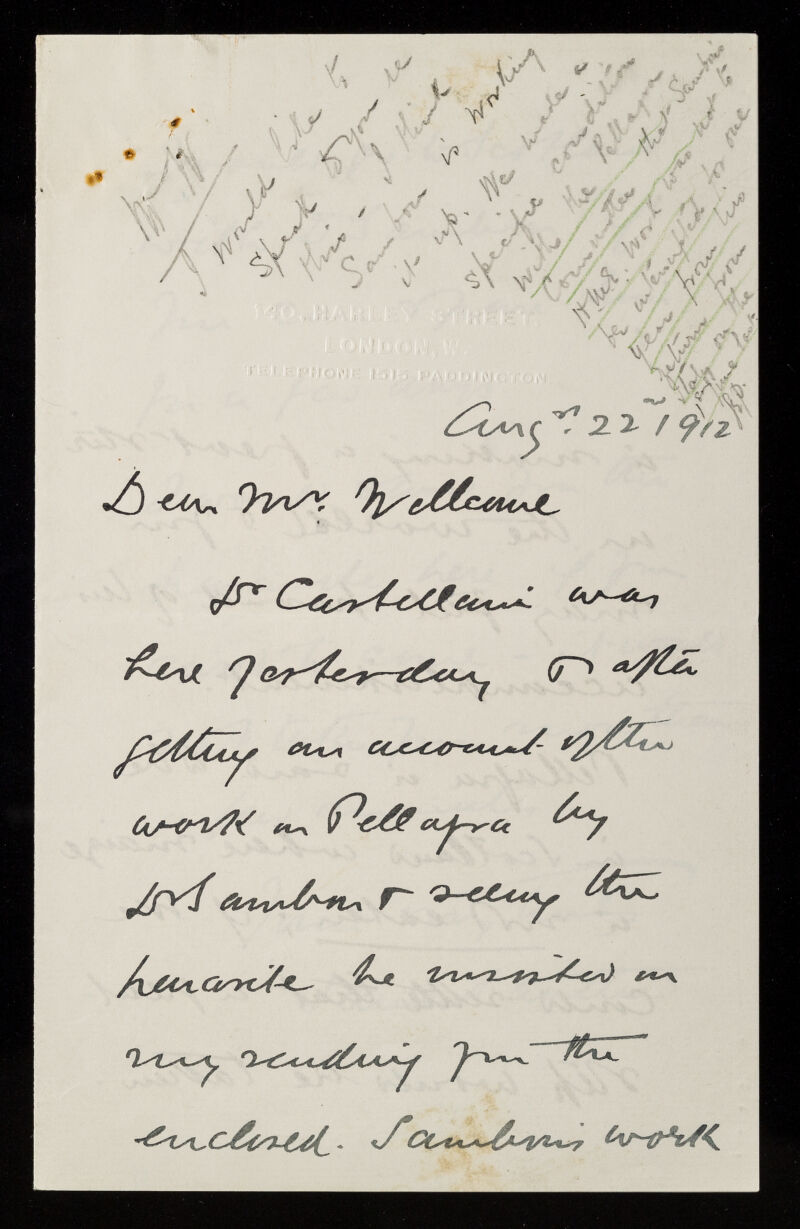 Mr W
I would like to
speak to you re
this - I think
Sambon is working
it up. We made a
specific condition
with the Pellagra
Committee that Sambon's
H.M.E. work was not to
be interrupted for one
year from his
return from
Italy on the
1st June last.
140, HARLEY STREET,
LONDON, W.
TELEPHONE 1515 PADDINGTON
Augst. 22nd 1912
Dear Mr. Wellcome
Dr Castellani was
here yesterday & after
getting an account of the
work on Pellagra by
Dr Sambon & seeing the
parasite he insisted on
my sending you the
enclosed. Sambon's work